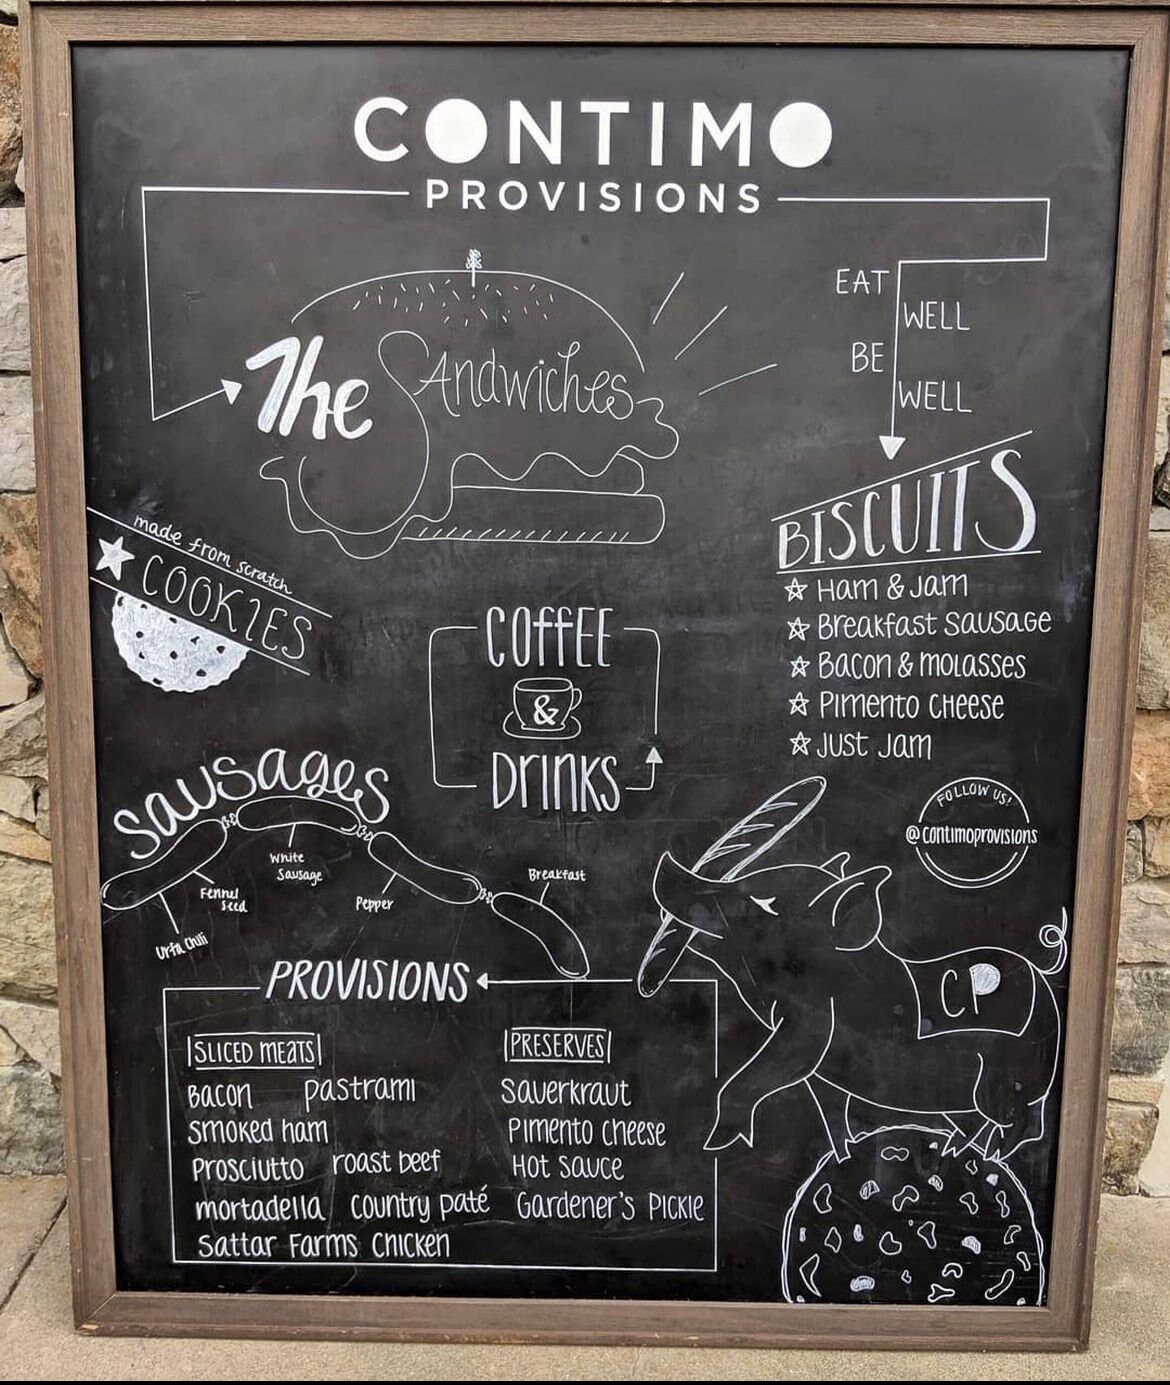 CONTIMO
PROVISIONS
The Sandwiches
EAT
WELL
BE
WELL
BISCUITS
Ham & Jam
Breakfast Sausage
Bacon & Molasses
Pimento Cheese
Just Jam
made from scratch
COOKIES
COFFEE
&
Drinks
Sausages
Urfa Chili
Fennel
Seed
White
Sausage
Pepper
Breakfast
FOLLOW US!
@contimoprovisions
CP
PROVISIONS
SLICED MEATS
Bacon Pastrami
Smoked ham
Prosciutto roast beef
mortadella country paté
Sattar Farms Chicken
PRESERVES
Sauerkraut
Pimento Cheese
Hot Sauce
Gardener's Pickle